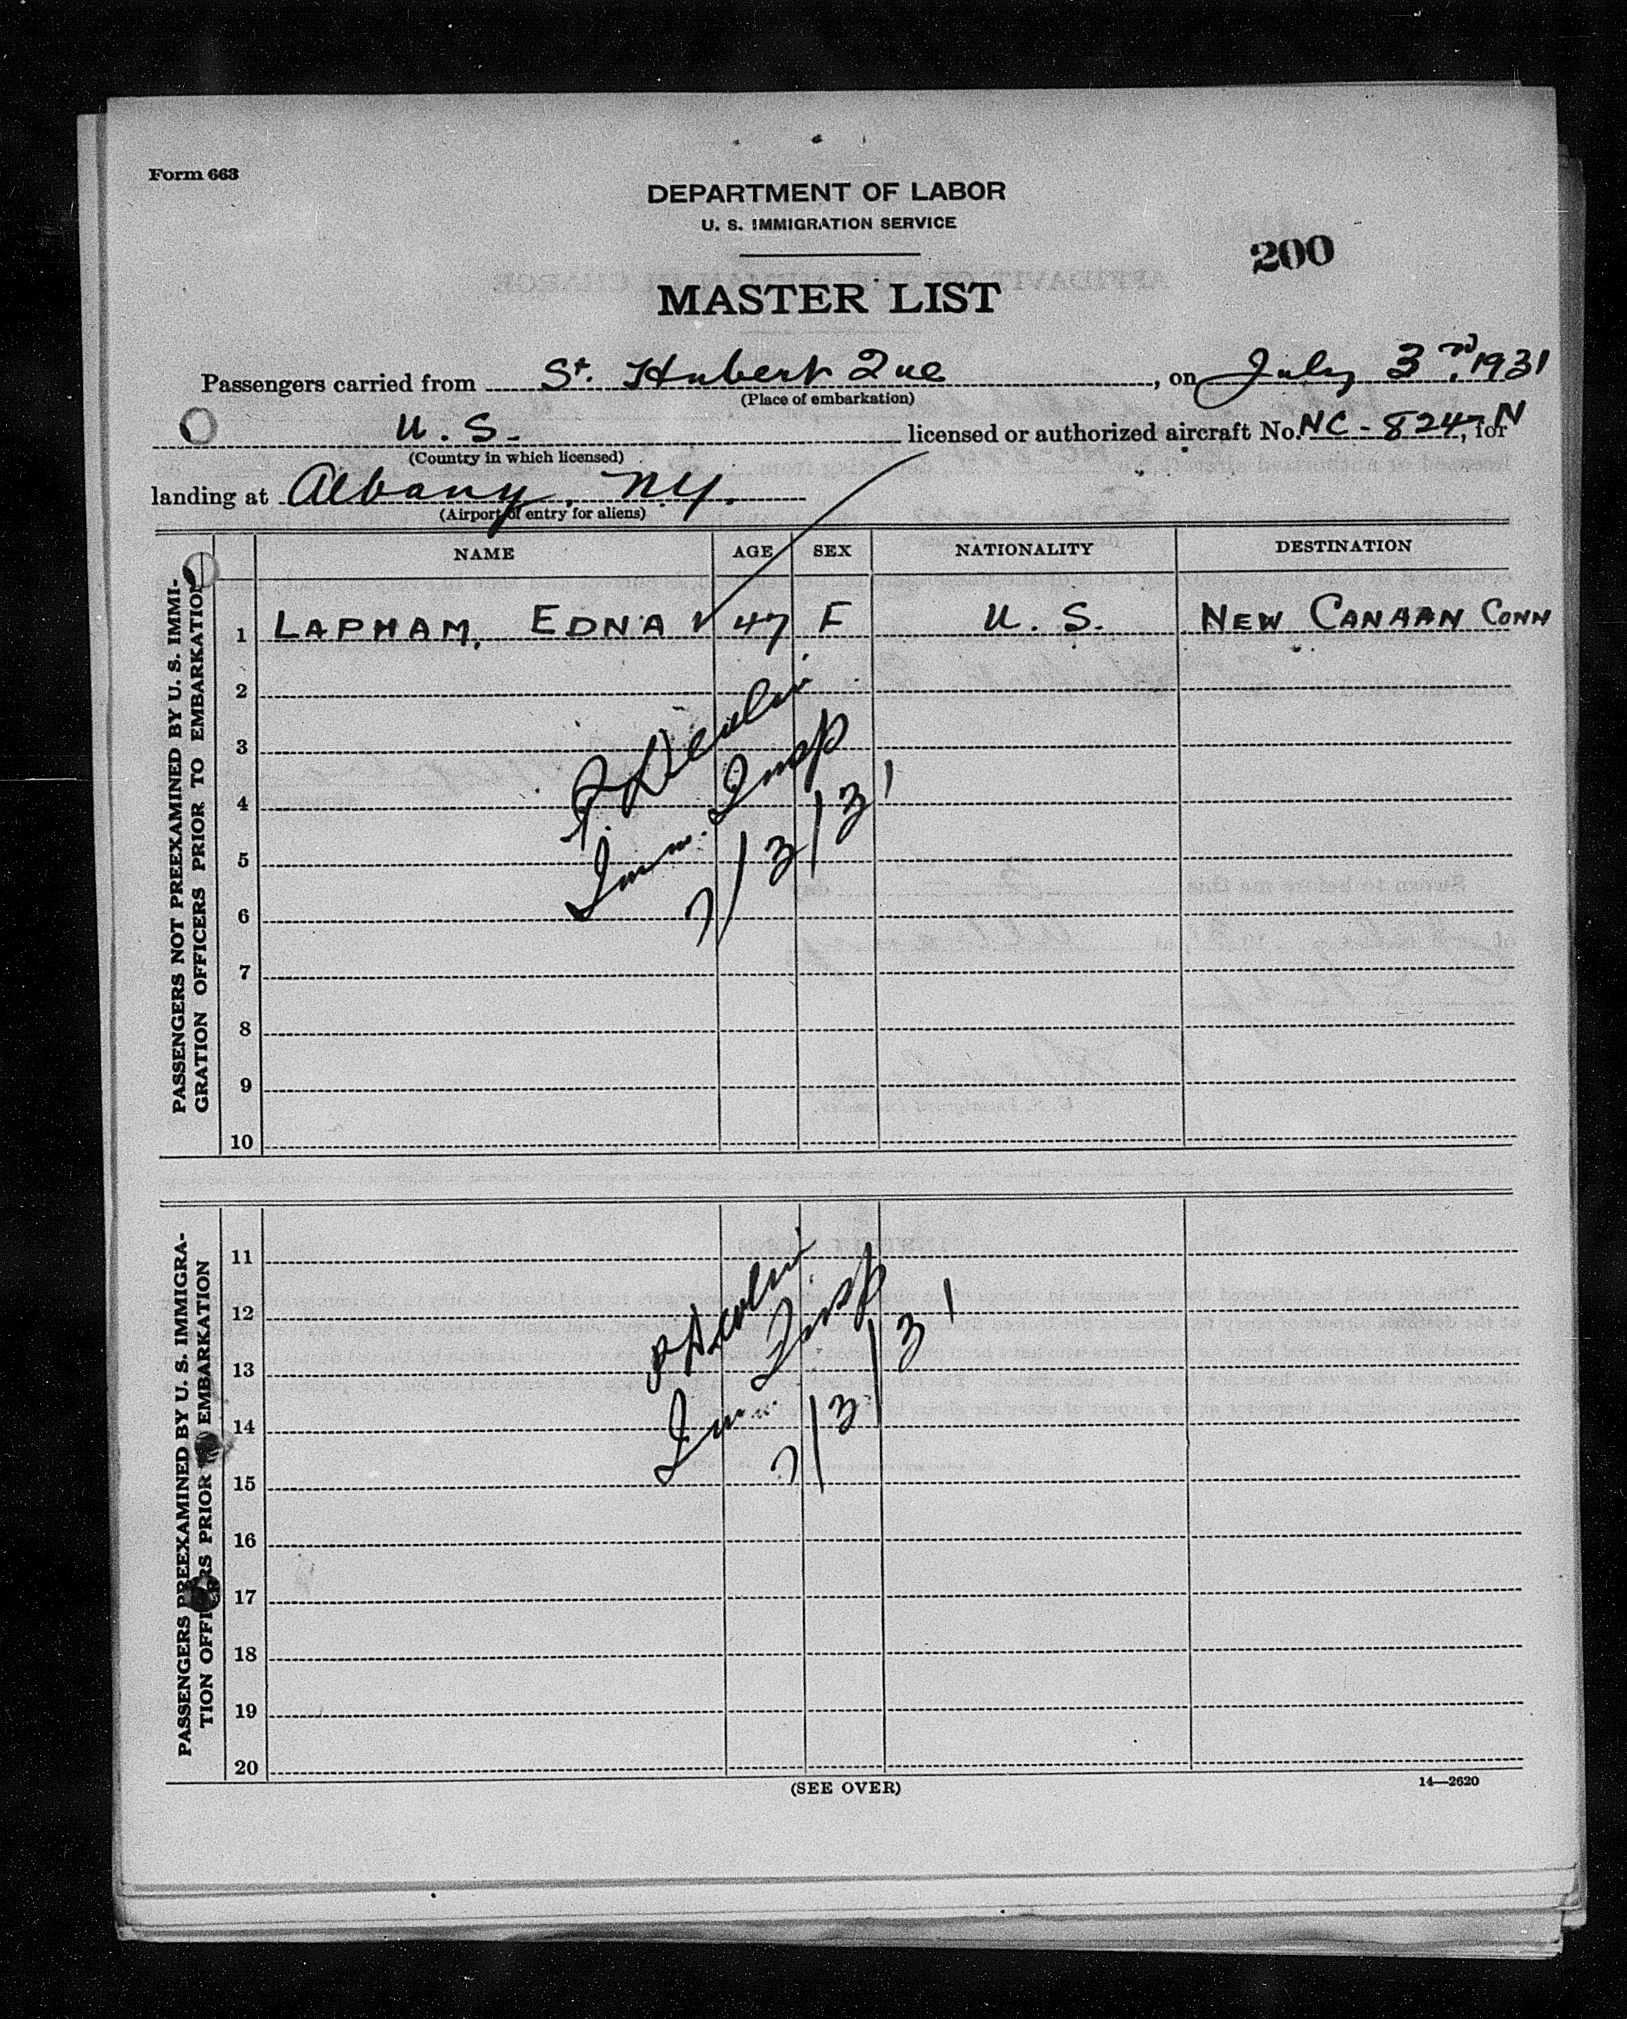 Form 663
DEPARTMENT OF LABOR
U. S. IMMIGRATION SERVICE
200
MASTER LIST
Passengers carried from St. Hubert Que, on July 3rd, 1931
(Place of embarkation)
U. S. licensed or authorized aircraft No. NC-824N, for
(Country in which licensed)
landing at Albany, N.Y.
(Airport of entry for aliens)
NAME AGE SEX NATIONALITY DESTINATION
PASSENGERS NOT PREEXAMINED BY U. S. IMMI-
GRATION OFFICERS PRIOR TO EMBARKATION
1 LAPHAM, EDNA V 47 F U. S. NEW CANAAN CONN
2
3
4
5
6
7
8
9
10
Imm. Insp
7/3/31
PASSENGERS PREEXAMINED BY U. S. IMMIGRA-
TION OFFICERS PRIOR EMBARKATION
11
12
13
14
15
16
17
18
19
20
Imm. Insp
7/3/31
(SEE OVER)
14—2620